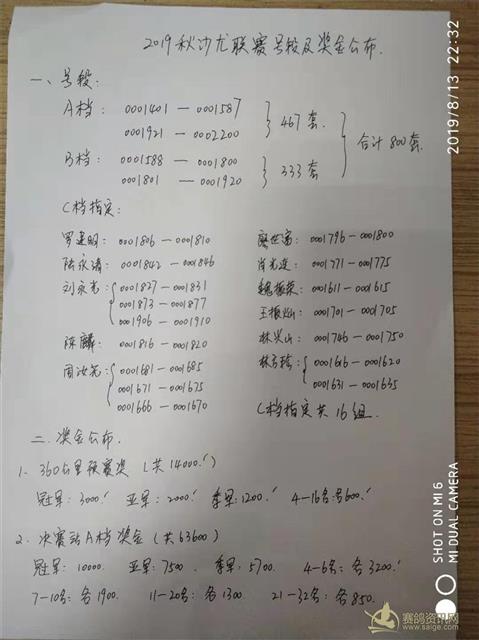 2019秋沙龙联赛号段及奖金公布.
一、号段:
A档: 0001401 — 0001587
0001921 — 0002200
467套.
B档: 0001588 — 0001800
0001801 — 0001920
333套
合计800套.
C档指定:
罗建明: 0001806 — 0001810
陆永清: 0001842 — 0001846
刘永光: 0001827 — 0001831
0001873 — 0001877
0001906 — 0001910
陈麟: 0001816 — 0001820
周汝光: 0001681 — 0001685
0001671 — 0001675
0001666 — 0001670
廖世富: 0001796 — 0001800
肖光连: 0001771 — 0001775
魏振荣: 0001611 — 0001615
王振灿: 0001701 — 0001705
林兴山: 0001746 — 0001750
林方珍: 0001616 — 0001620
0001631 — 0001635
C档指定共16组.
二. 奖金公布.
1、360公里预赛奖 (共14000.)
冠军: 3000. 亚军: 2000. 季军: 1200. 4-16名: 各600.
2、决赛站A档奖金 (共63600)
冠军: 10000. 亚军: 7500. 季军: 5700. 4-6名: 各3200.
7-10名: 各1900. 11-20名: 各1300. 21-32名: 各850.
2019/8/13 22:32
SHOT ON MI 6
MI DUAL CAMERA
赛鸽资讯网
www.saige.com